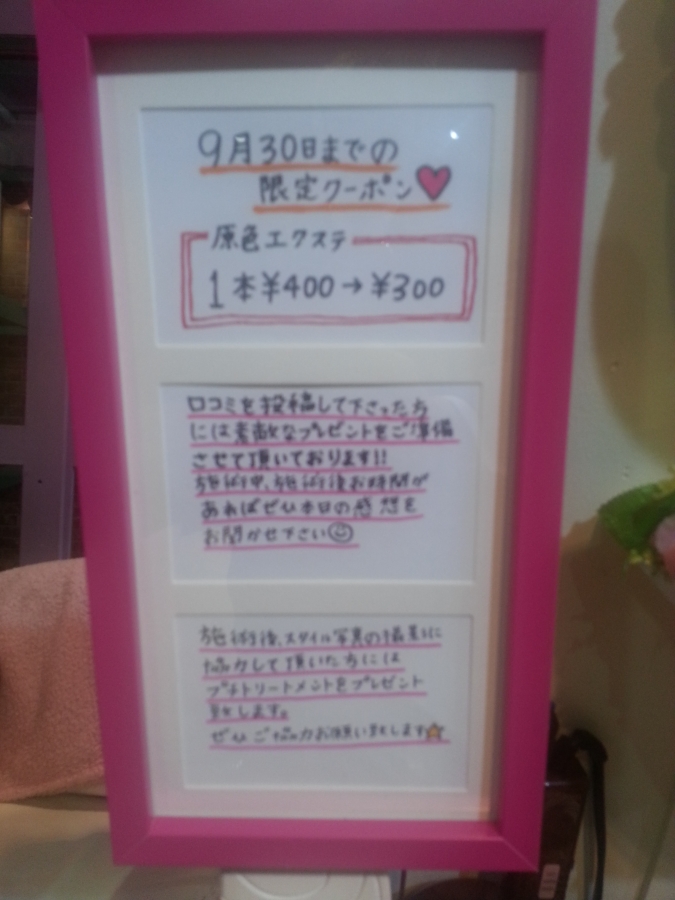 9月30日までの
限定クーポン
原色エクステ
1本¥400→¥300
口コミを投稿して下さった方
には素敵なプレゼントをご準備
させて頂いております!!
施術中、施術後お時間が
あればぜひ本日の感想を
お聞かせ下さい
施術後、スタイル写真の撮影に
協力して頂いた方には
プチトリートメントをプレゼント
致します。
ぜひご協力お願い致します